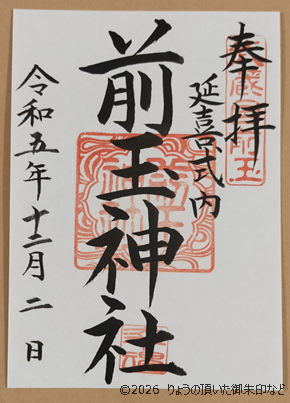 奉拝
延喜式内
前玉神社
令和五年十二月二日
©2026 りょうの頂いた御朱印など